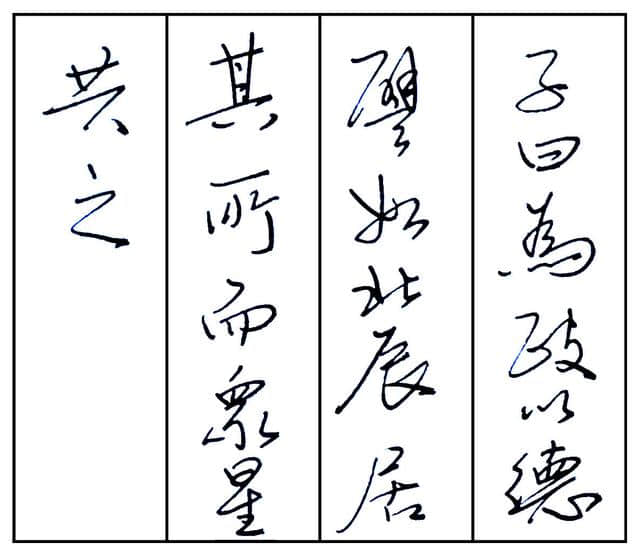 子曰為政以德
譬如北辰居
其所而眾星
共之